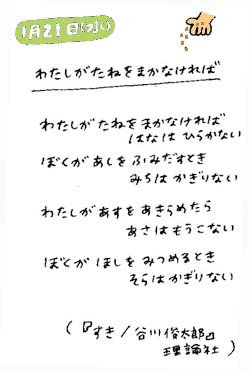 1月21日(水)
わたしがたねをまかなければ
わたしがたねをまかなければ
はなは ひらかない
ぼくがあしをふみだすとき
みちは かぎりない
わたしがあすをあきらめたら
あさはもうこない
ぼくが ほしを みつめるとき
そらはかぎりない
(『すき/谷川俊太郎』
理論社)